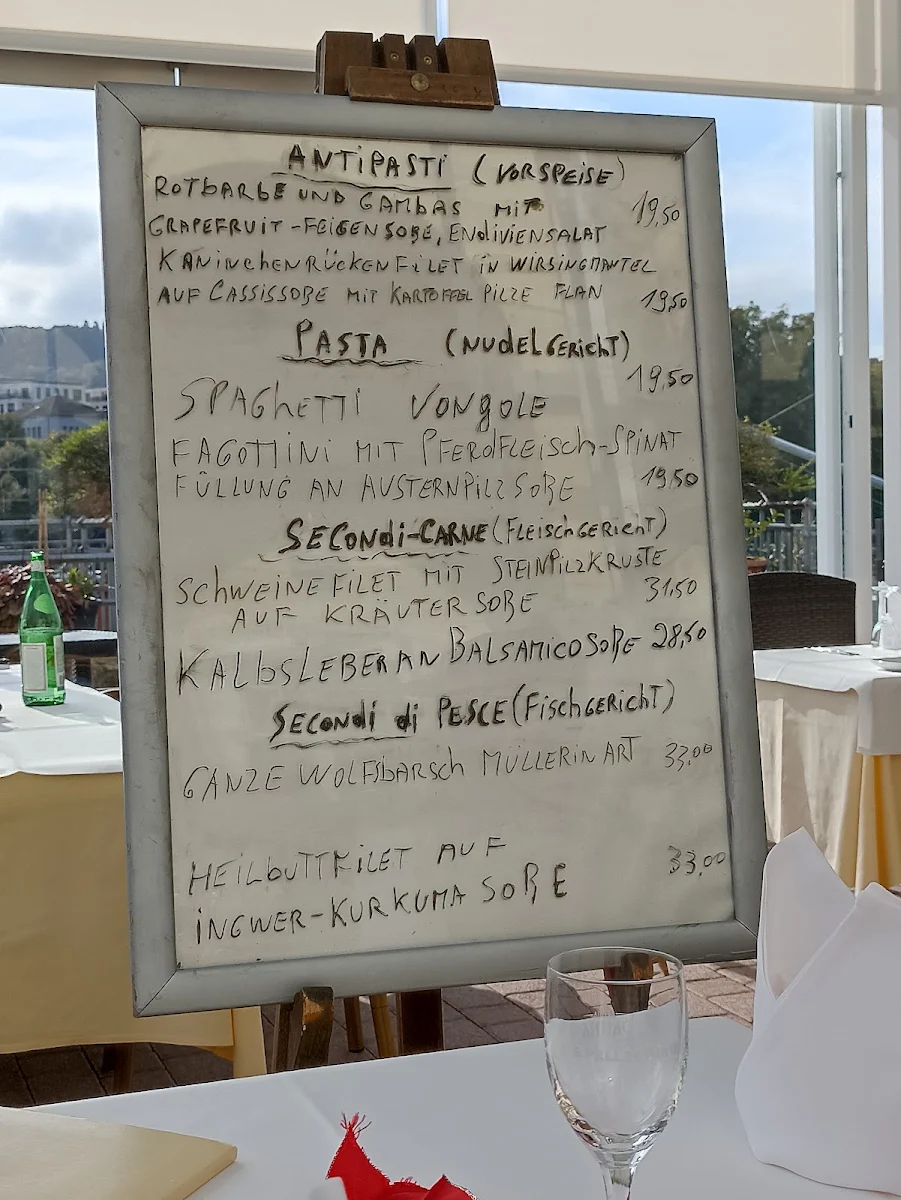 ANTIPASTI (VORSPEISE)
ROTBARBE UND GAMBAS MIT
GRAPEFRUIT-FEIGENSOßE, ENDIVIENSALAT 19,50
KANINCHENRÜCKENFILET IN WIRSINGMANTEL
AUF CASSISSOßE MIT KARTOFFEL PILZE FLAN 19,50
PASTA (NUDELGERICHT)
SPAGHETTI VONGOLE 19,50
FAGOTTINI MIT PFERDFLEISCH-SPINAT
FÜLLUNG AN AUSTERNPILZSOßE 19,50
SECONDI-CARNE (FLEISCHGERICHT)
SCHWEINEFILET MIT STEINPILZKRUSTE
AUF KRÄUTERSOßE 31,50
KALBSLEBER AN BALSAMICOSOßE 28,50
SECONDI di PESCE (FISCHGERICHT)
GANZE WOLFSBARSCH MÜLLERIN ART 33,00
HEILBUTTFILET AUF 33,00
INGWER-KURKUMA SOßE